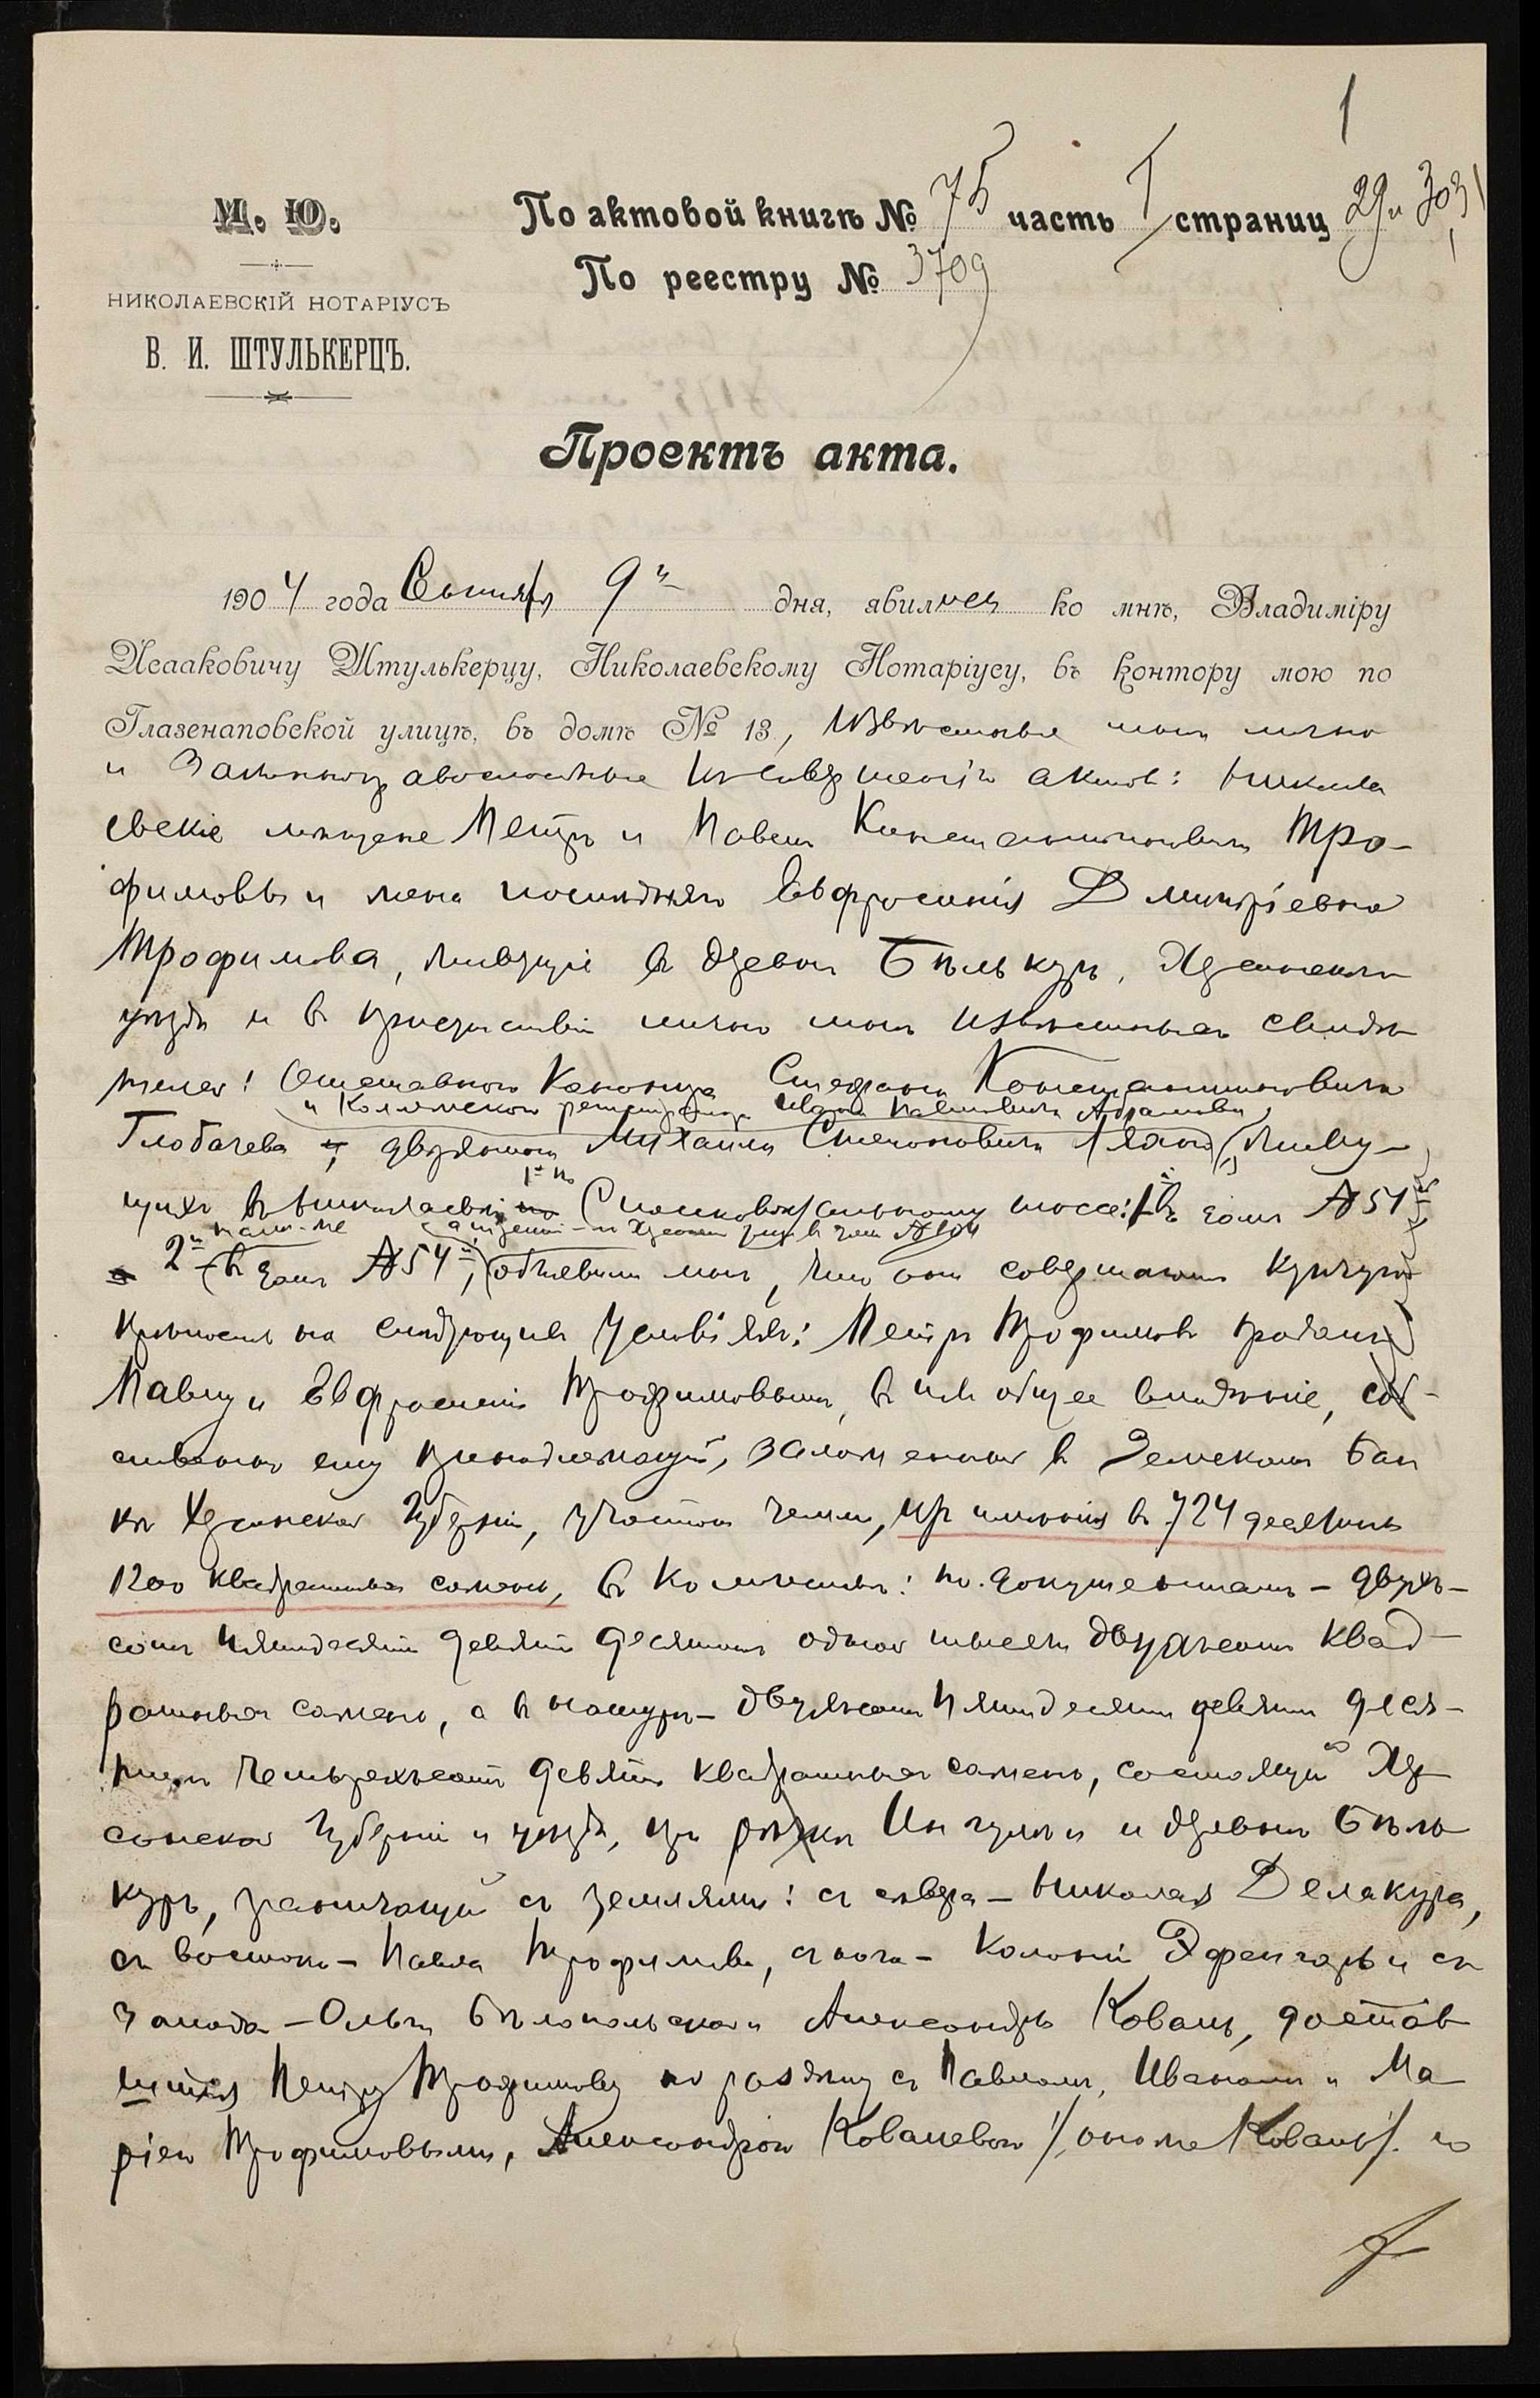 1
М. Ю.
НИКОЛАЕВСКІЙ НОТАРІУСЪ
В. И. ШТУЛЬКЕРЦЪ.
По актовой книгѣ № 75 часть I страниц 29 и 30
По реестру № 3709
Проектъ акта.
1904 года Сентября 9 дня, явились ко мнѣ, Владиміру
Исааковичу Штулькерцу, Николаевскому Нотаріусу, въ контору мою по
Глазенаповской улицѣ, въ домѣ № 13, извѣстные мнѣ лично
и къ совершенію актов: Никола
евскіе мѣщане Петръ и Павелъ Константиновичи Тро-
фимовы и жена послѣдняго Евфросинія Дмитріевна
Трофимова, живущіе в деревнѣ Бѣлькуръ, Херсонскаго
уѣзда и в присутствіи лично мнѣ извѣстныхъ свидѣ
телей: Степана Константиновича
и Коллежскаго регистратора Ивана Абрамова
Глобачева и дворянина Михаила живу-
щихъ в Николаевѣ по шоссе: 1й в домѣ № 51й
2й в домѣ № 54й, объявили мнѣ, что они совершаютъ купчую
крѣпость на слѣдующихъ условіяхъ: Петръ Трофимовъ продалъ
Павлу и Евфросиніи Трофимовымъ, в ихъ общее владѣніе, соб-
ственно ему принадлежащій, заложенный в Земскомъ Бан
кѣ Херсонской Губерніи, участокъ земли, изъ имѣнія в 724 десятины
1200 квадратныхъ саженъ, в количествѣ: по документамъ - двухъ-
сотъ пятидесяти девяти десятинъ одной тысячи двухсотъ квад-
ратныхъ саженъ, а в натурѣ - двухсотъ пятидесяти девяти деся-
тинъ четырехсотъ девяти квадратныхъ саженъ, состоящій Хер
сонской Губерніи и уѣзда, при рѣчкѣ Ингулѣ и деревнѣ Бѣль
куръ, граничащій съ землями: съ сѣвера - Николая Делакура,
съ востока - Павла Трофимова, съ юга - колоніи Эфенгаръ и съ
запада - Ольги Бѣлопольской и Александры Ковань, достав
шійся Петру Трофимову по раздѣлу съ Павломъ, Иваномъ и Ма
ріей Трофимовыми, Александрой Ковалевой /она же Ковань/. по